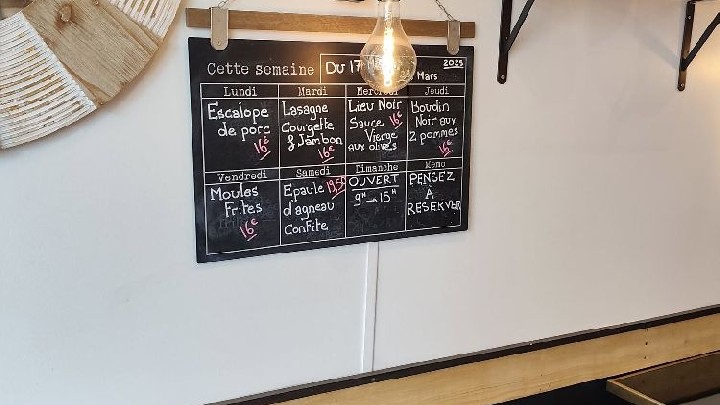 Cette semaine Du 17 Mars 2025
Lundi
Escalope
de porc
16€
Mardi
Lasagne
Courgette
& Jambon
16€
Mercredi
Lieu Noir
Sauce 16€
Vierge
aux olives
Jeudi
Boudin
Noir aux
2 pommes
16€
Vendredi
Moules
Frites
16€
Samedi
Epaule 19,50
d'agneau
confite
Dimanche
OUVERT
9H → 15H
Menu
PENSEZ
À
RESERVER